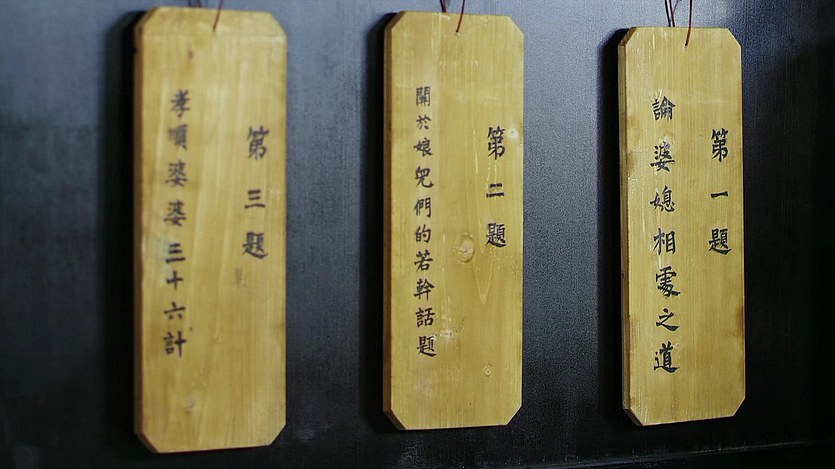 第一題
論婆媳相處之道
第二題
關於娘兒們的若幹話題
第三題
孝順婆婆三十六計